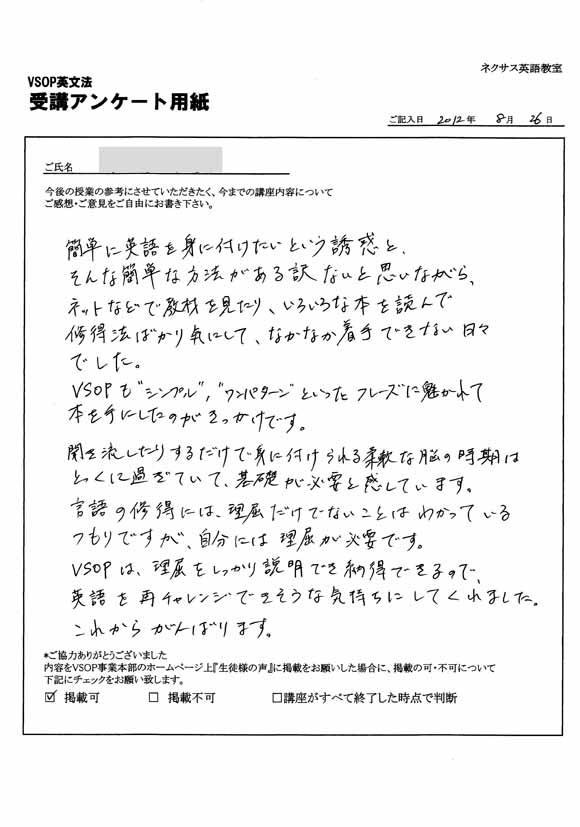 ネクサス英語教室
VSOP英文法
受講アンケート用紙
ご記入日 2012年 8月 26日
ご氏名
今後の授業の参考にさせていただきたく、今までの講座内容について
ご感想・ご意見をご自由にお書き下さい。
簡単に英語を身に付けたいという誘惑と、
そんな簡単な方法がある訳ないと思いながら、
ネットなどで教材を見たり、いろいろな本を読んで
修得法ばかり気にして、なかなか着手できない日々
でした。
VSOPも"シンプル","ワンパターン"といったフレーズに魅かれて
本を手にしたのがきっかけです。
聞き流したりするだけで身に付けられる柔軟な脳の時期は
とっくに過ぎていて、基礎が必要と感じています。
言語の修得には、理屈だけでないことはわかっている
つもりですが、自分には理屈が必要です。
VSOPは、理屈をしっかり説明でき納得できるので、
英語を再チャレンジできそうな気持ちにしてくれました。
これからがんばります。
*ご協力ありがとうございました
内容をVSOP事業本部のホームページ上『生徒様の声』に掲載をお願いした場合に、掲載の可・不可について
下記にチェックをお願い致します。
☑ 掲載可 □ 掲載不可 □講座がすべて終了した時点で判断